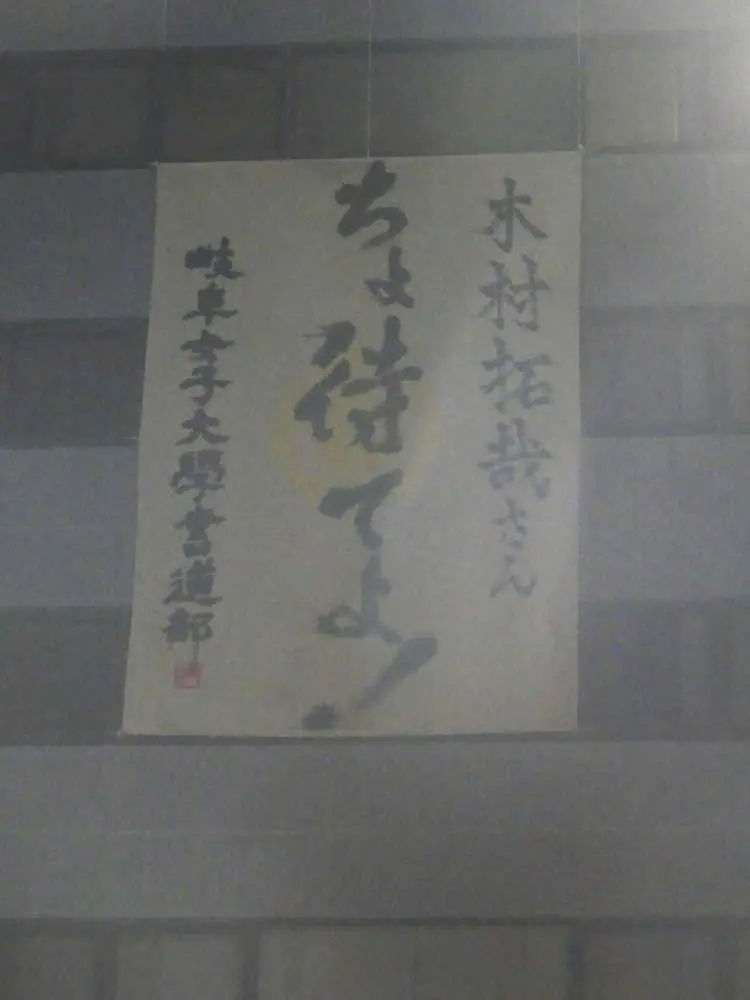 木村拓哉さん
ちょ待てよ！
岐阜女子大學書道部